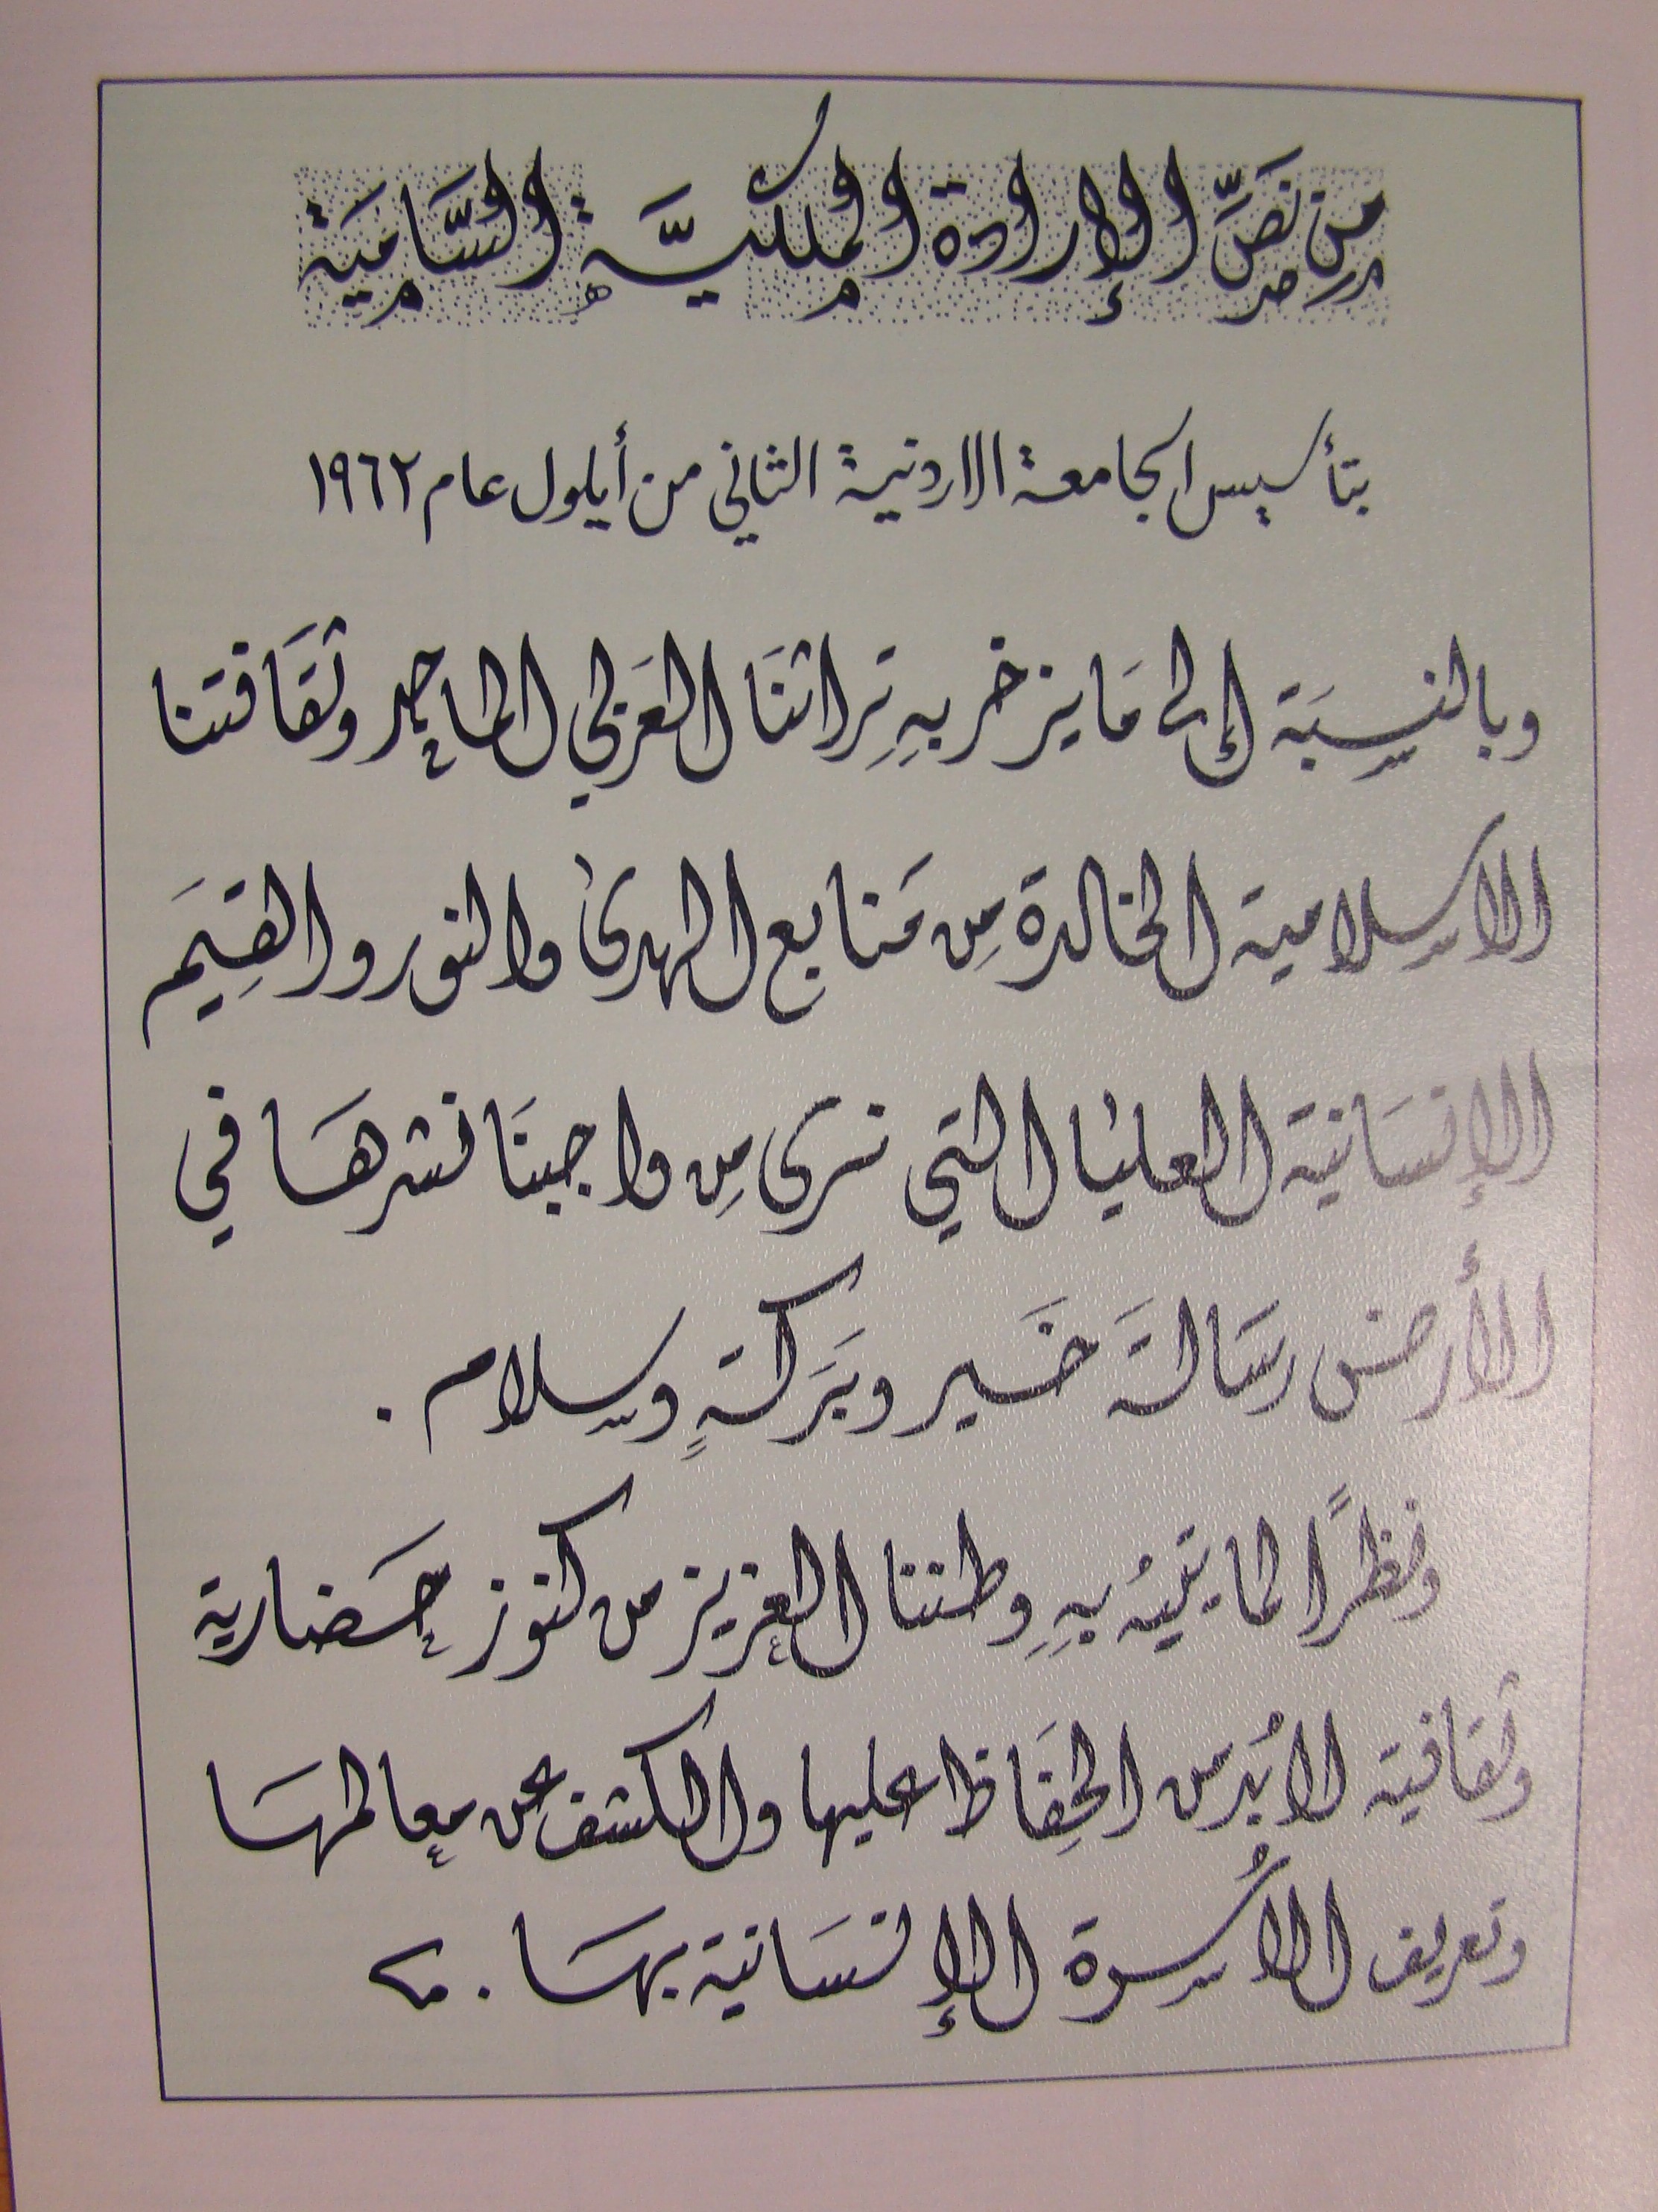 من نصِّ الإرادة الملكيَّة السَّاميَة
بتأسيس الجامعة الاردنية الثاني من أيلول عام ١٩٦٢
وبالنسبَة إلى مَا يزخر بهِ تِراثنَا العَربي الماجد وثقَافتنا
الاسلامية الخالدة مِن مَنابع الهدىٰ والنور والقِيَم
الإنسَانية العليٰا التي نرى مِن واجبنَا نشرهَا في
الأرض رسَالةَ خَير وبَركةٍ وسلام .
ونظرًا لما يَتيهُ بهِ وطننا العزيز من كنوز حَضارية
وثقافية لابُد من الحِفَاظ عليها والكشف عن معالمهَا
وتعريف الاُسرة الإنسَانية بهَا .